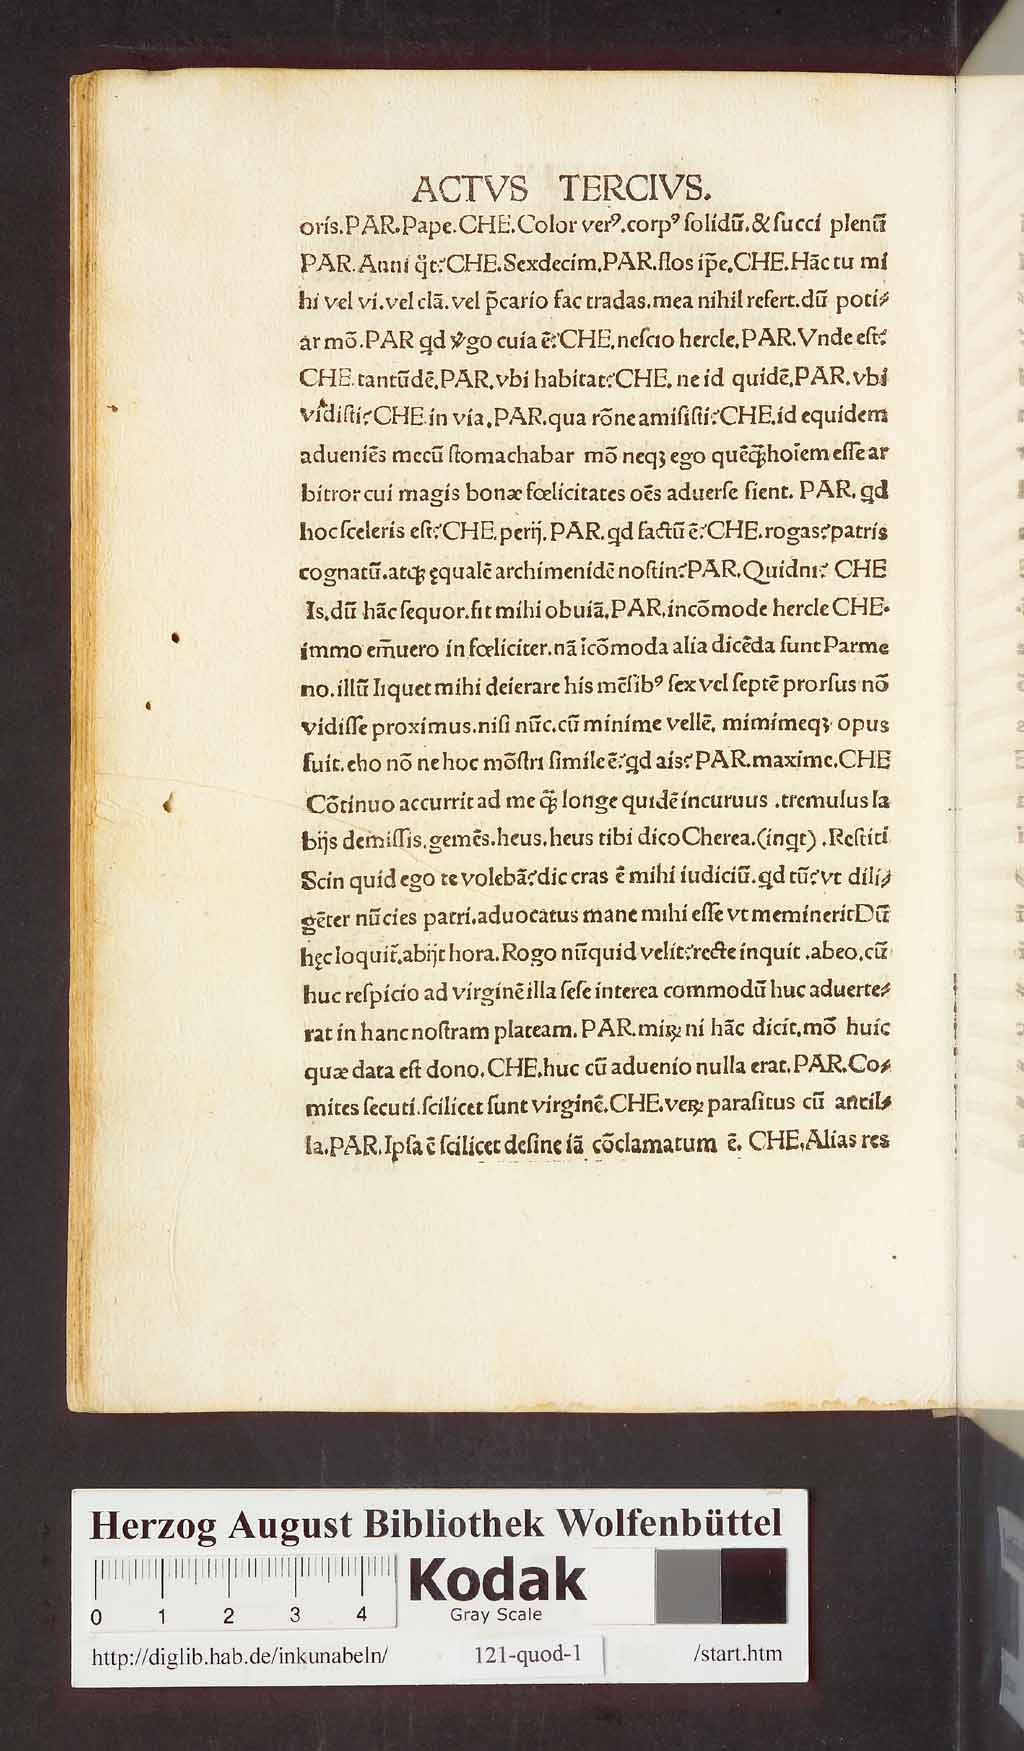 ACTVS TERCIVS.
oris.PAR.Pape.CHE.Color verꝰ.corpꝰ ſolidū.&ſucci plenū
PAR.Anni q̄t?CHE.Sexdecim.PAR.flos ip̄e.CHE.Hāc tu mi
hi vel vi.vel clā.vel p̄cario fac tradas.mea nihil refert.dū poti⸗
ar mō.PAR qd v̾go cuia ē?CHE.neſcio hercle.PAR.Vnde eſt?
CHE.tantūdē.PAR.vbi habitat?CHE. ne id quidē.PAR.vbi
vidiſti?CHE.in via.PAR.qua rōne amiſiſti?CHE.id equidem
adueniēs mecū ſtomachabar mō neqꝫ ego quēq̄ꝫ hoīem eſſe ar
bitror cui magis bonæ fœlicitates oēs aduerſe ſient. PAR. qd
hoc ſceleris eſt?CHE.perij.PAR.qd factū ē?CHE.rogas?patris
cognatū.atqꝫ ęqualē archimenidē noſtin?PAR.Quidni? CHE
Is.dū hāc ſequor.fit mihi obuiā.PAR.incōmode hercle CHE.
immo em̄uero in fœliciter.nā īcōmoda alia dicēda ſunt Parme
no.illū liquet mihi deierare his mēſibꝰ ſex vel ſeptē prorſus nō
vidiſſe proximus.niſi nūc.cū minime vellē. mimimeqꝫ opus
fuit.eho nō ne hoc mōſtri ſimile ē?qd ais?PAR.maxime.CHE
Cōtinuo accurrit ad me q̄ꝫ longe quidē incuruus .tremulus la
bijs demiſſis.gemēs.heus.heus tibi dico Cherea.(inqt) .Reſtiti
Scin quid ego te volebā?dic cras ē mihi iudiciū.qd tū?vt dili⸗
gēter nūcies patri.aduocatus mane mihi eſſe vt meminerit Dū
hęc loquit̄.abijt hora.Rogo nūquid velit?recte inquit .abeo.cū
huc reſpicio ad virginē illa ſeſe interea commodū huc aduerte⸗
rat in hanc noſtram plateam. PAR.miꝝ ni hāc dicit.mō huic
quæ data eſt dono.CHE.huc cū aduenio nulla erat.PAR.Co⸗
mites ſecuti.ſcilicet ſunt virginē.CHE.veꝝ paraſitus cū ancil⸗
la.PAR.Ipſa ē ſcilicet deſine iā cōclamatum ē. CHE.Alias res
Herzog August Bibliothek Wolfenbüttel
Kodak
Gray Scale
0 1 2 3 4
http://diglib.hab.de/inkunabeln/ 121-quod-1 /start.htm